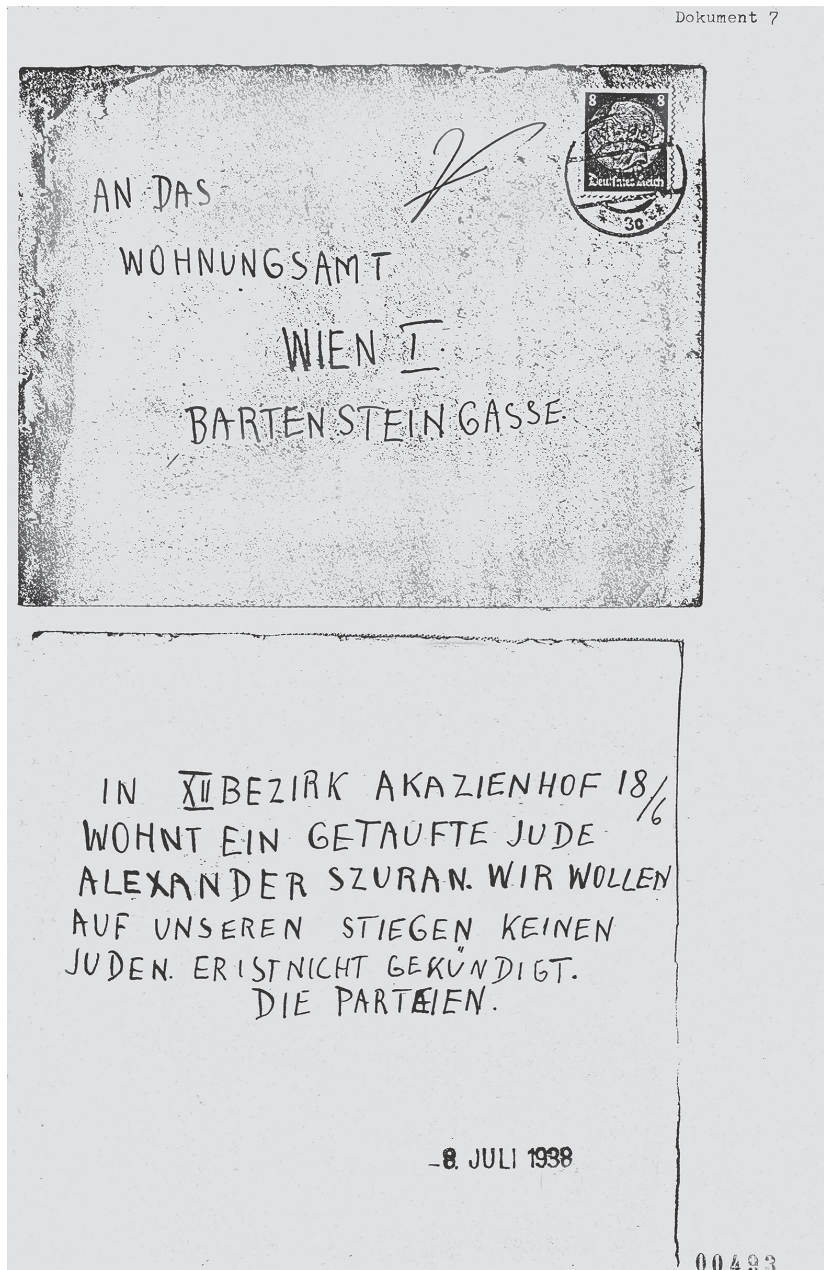 Dokument 7
8 8
Deutsches Reich
3a
AN DAS
WOHNUNGSAMT
WIEN I.
BARTENSTEINGASSE.
IN XII BEZIRK AKAZIENHOF 18/6
WOHNT EIN GETAUFTE JUDE
ALEXANDER SZURAN. WIR WOLLEN
AUF UNSEREN STIEGEN KEINEN
JUDEN. ER IST NICHT GEKÜNDIGT.
DIE PARTEIEN.
-8. JULI 1938
00493